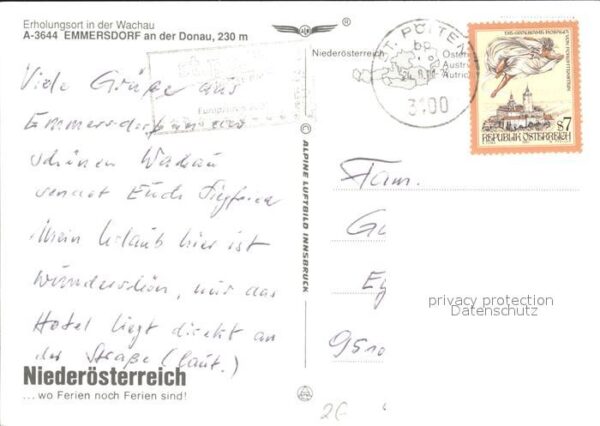 Erholungsort in der Wachau
A-3644 EMMERSDORF an der Donau, 230 m
Viele Grüße aus
Emmersdorf
schönen Wachau
sendet Euch Siegfried
Mein Urlaub hier ist
wunderschön, nur das
Hotel liegt direkt an
der Straße (laut.)
Niederösterreich
... wo Ferien noch Ferien sind!
® ALPINE LUFTBILD INNSBRUCK
Niederösterreich
ST. PÖLTEN
3100
Österr
Austria
Autric
REPUBLIK ÖSTERREICH
S7
Fam.
Gu
Ey
9510
privacy protection
Datenschutz
2€